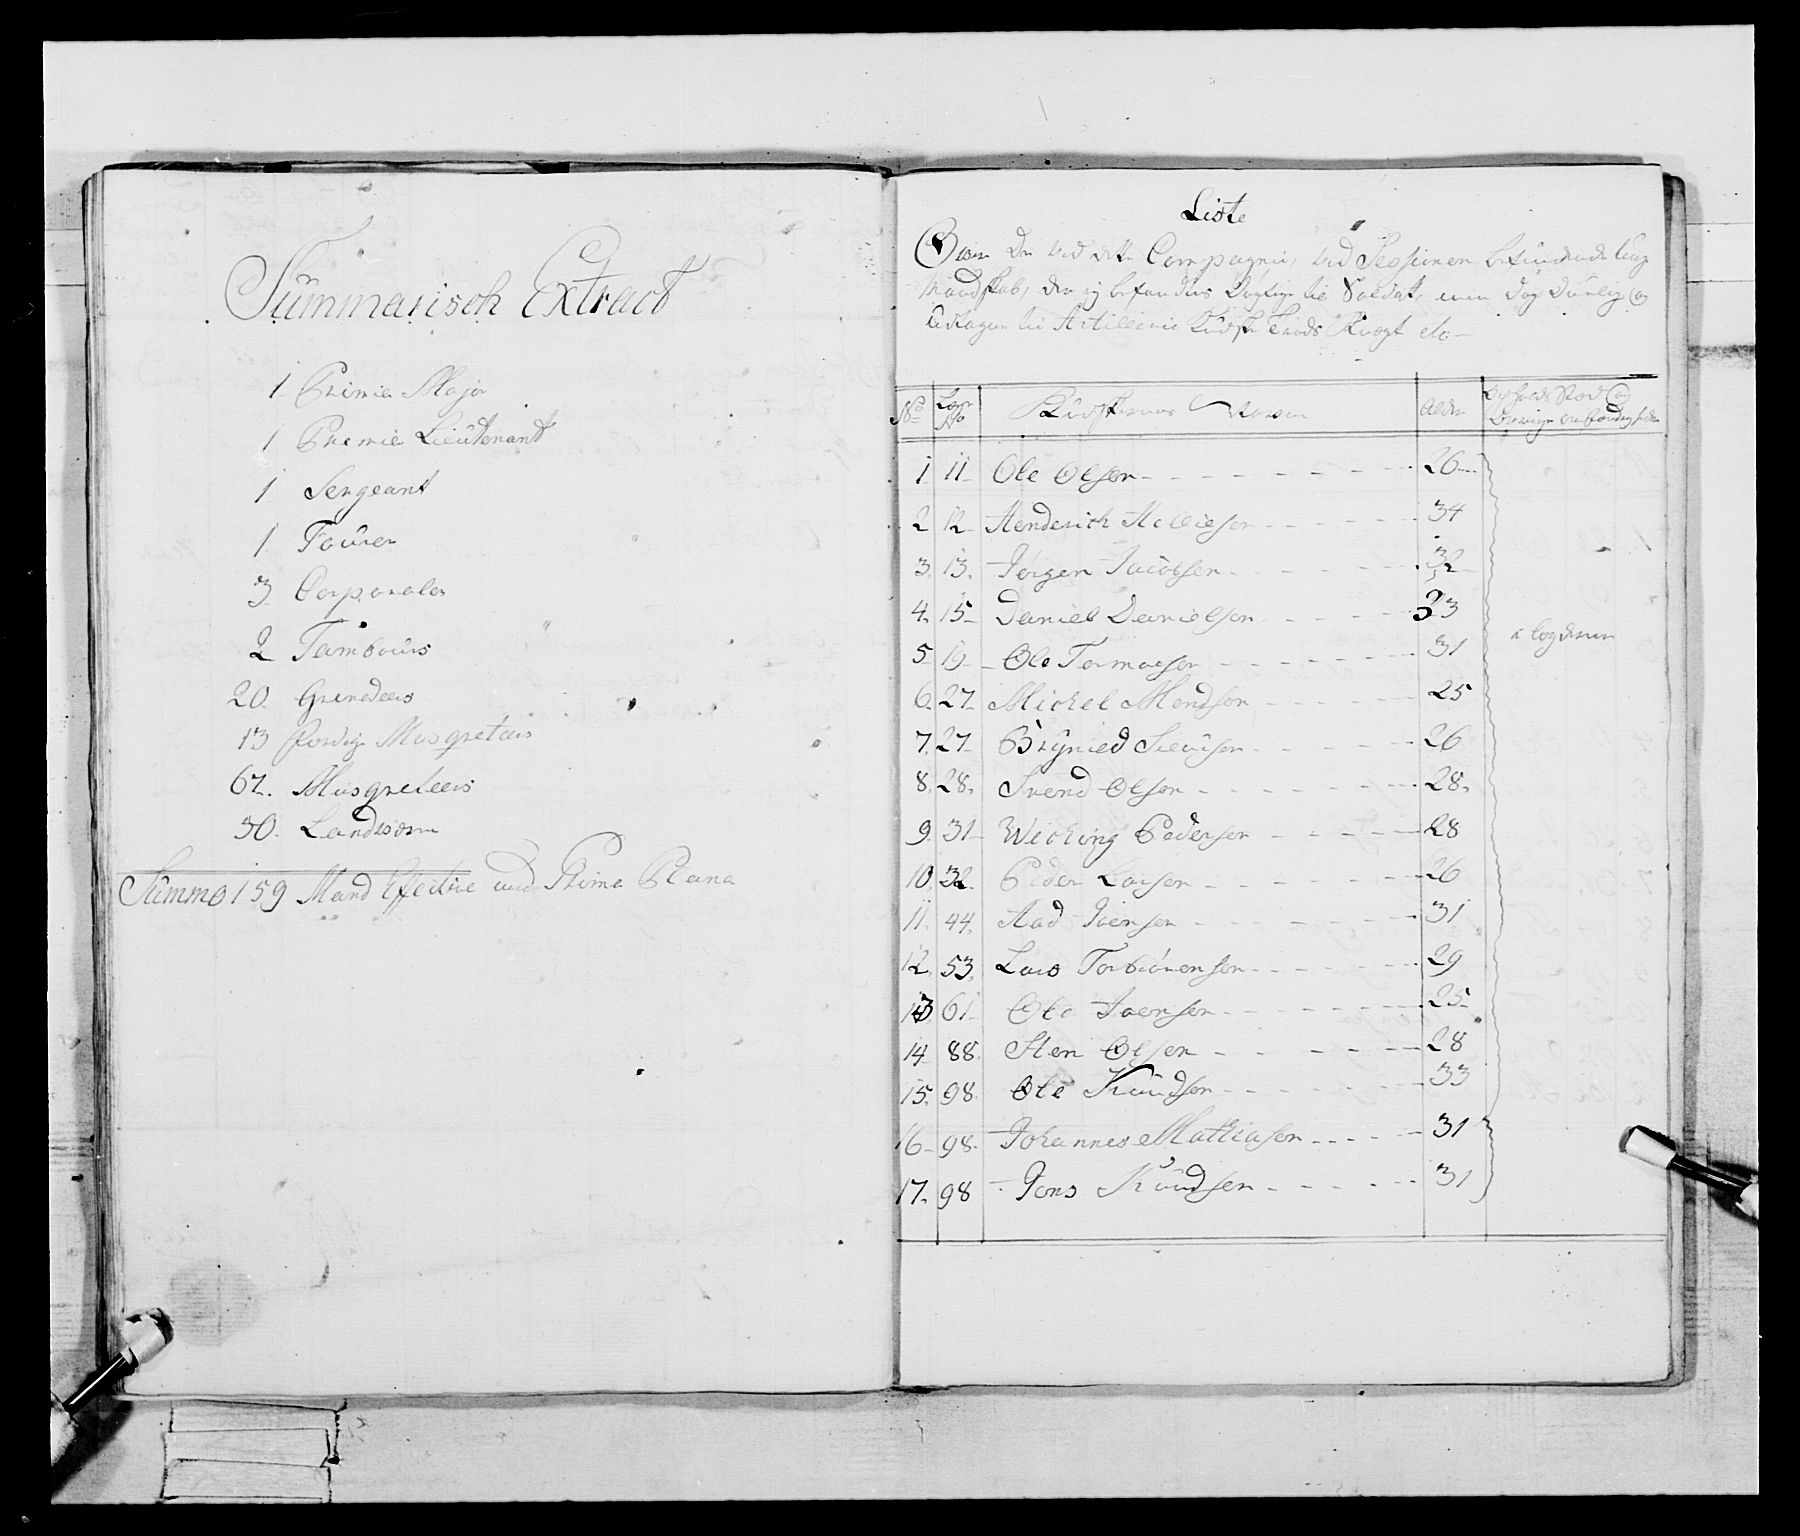 Summarisch Extract
1 Primie Major
1 Premie Lieutenant
1 Sergeant
1 Fourer
3 Corporaler
2 Tambours
20. Grenedeers
13 Musqveteers
67. Musqveteers
50. Landværn
Summa 159 Mand Efective und Prima Plana
Liste
Over De ved dette Compagnie, ved Sessionen befindende Ung
Mandskab, der ej befandtes Dygtige til Soldat, men dog Duelig og
til Artillerie Kudsk Knegt etc
No Lægs No Kudskernes Navn Alder og
1 11 Ole Olsen 26
2 12 Henderich Hellesen 34
3. 13. Jørgen Jacobsen 32
4. 15 Daniel Danielsen 33
5 19 Ole Tormoesen 31
6. 27 Michel Mondsen 25
7. 27 Brynied Siewsen 26
8. 28. Svend Olsen 28.
9. 31 Wiching Pedersen 28
10. 32. Peder Larsen 26
11. 44. Aad Joensen 31
12. 53. Lars Torbiönensen 29
13 61 Ole Joensen 25
14 88. Sten Olsen 28
15. 98. Ole Knudsen 33
16 98. Johannes Mathiasen 31
17. 98 Jons Knudsen 31